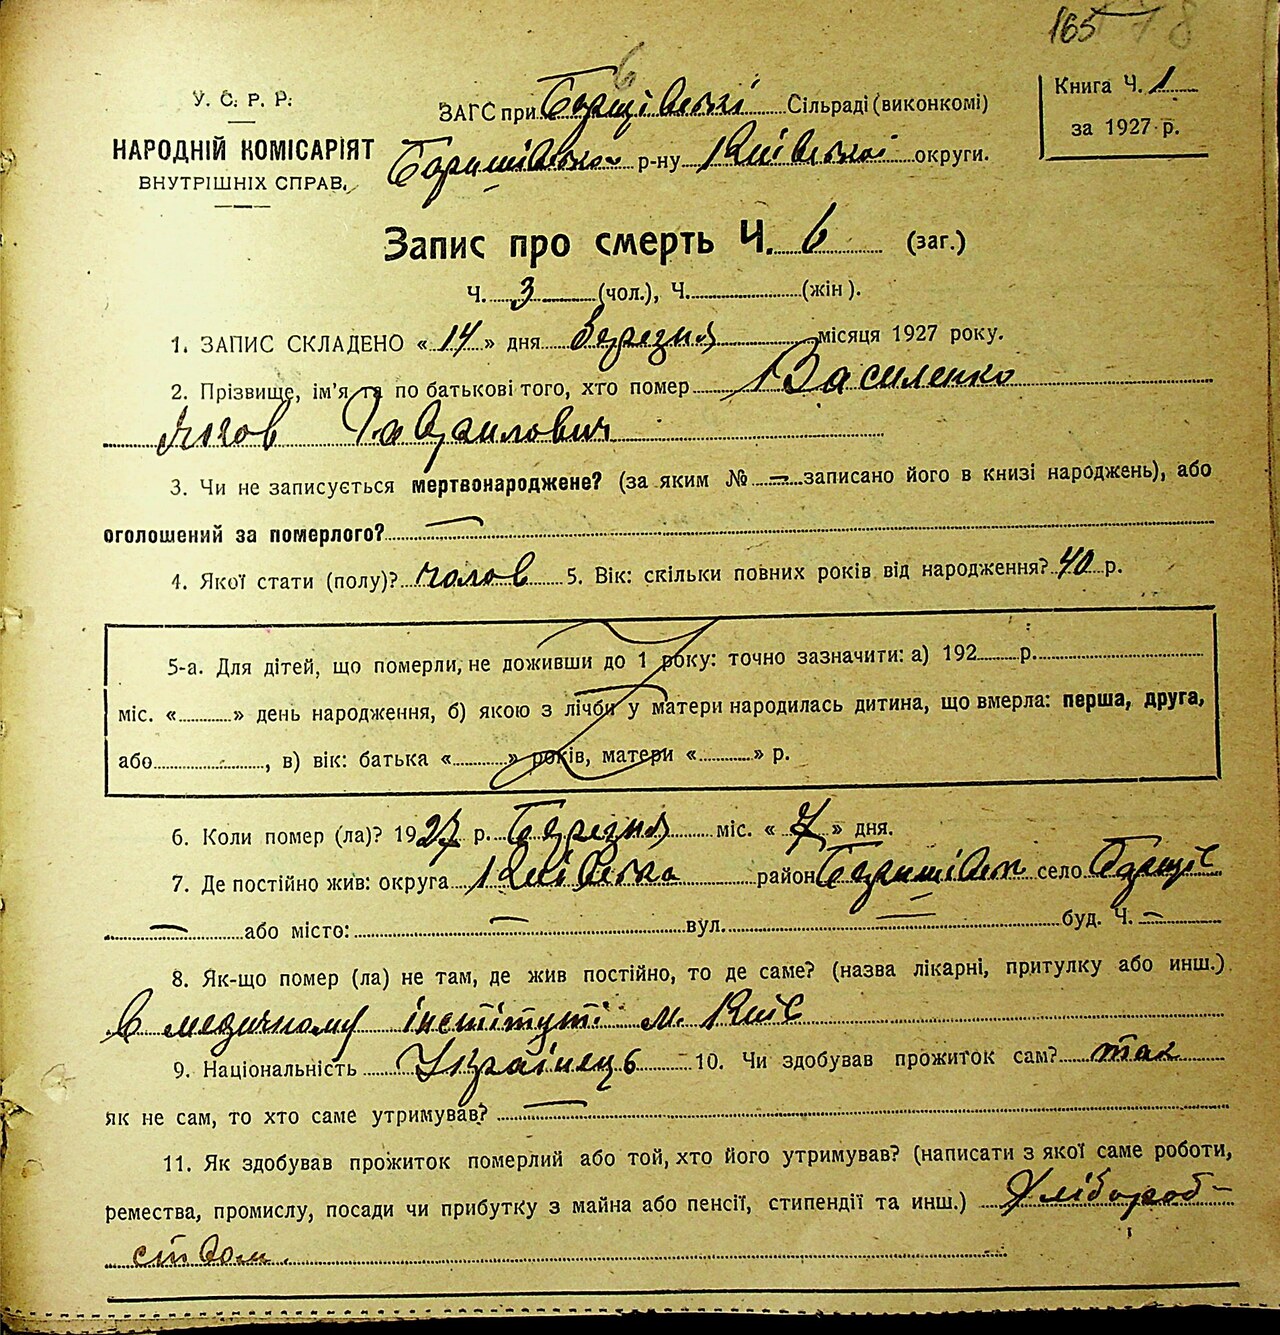 165 78
6
У. С. Р. Р.
НАРОДНІЙ КОМІСАРІЯТ
ВНУТРІШНІХ СПРАВ.
ЗАГС при Борщівській Сільраді (виконкомі)
Баришівського р-ну Київської округи.
Книга Ч. 1
за 1927 р.
Запис про смерть Ч. 6 (заг.)
Ч. 3 (чол.), Ч. (жін).
1. ЗАПИС СКЛАДЕНО « 14 » дня Березня місяця 1927 року.
2. Прізвище, ім'я та по батькові того, хто помер Василенко
Яков Гаврилович
3. Чи не записується мертвонароджене? (за яким № — записано його в книзі народжень), або
оголошений за померлого? —
4. Якої стати (полу)? чолов 5. Вік: скільки повних років від народження? 40 р.
5-а. Для дітей, що померли, не доживши до 1 року: точно зазначити: а) 192 р.
міс. « » день народження, б) якою з лічби у матери народилась дитина, що вмерла: перша, друга,
або , в) вік: батька « » років, матери « » р.
6. Коли помер (ла)? 1927 р. Березня міс. « 7 » дня.
7. Де постійно жив: округа Київська район Баришівськ село Борщів
— або місто: — вул. — буд. Ч. —
8. Як-що помер (ла) не там, де жив постійно, то де саме? (назва лікарні, притулку або инш.)
в медичному інстітуті м. Київ
9. Національність Українець 10. Чи здобував прожиток сам? так
як не сам, то хто саме утримував? —
11. Як здобував прожиток померлий або той, хто його утримував? (написати з якої саме роботи,
ремества, промислу, посади чи прибутку з майна або пенсії, стипендії та инш.) Хлібороб-
ством.